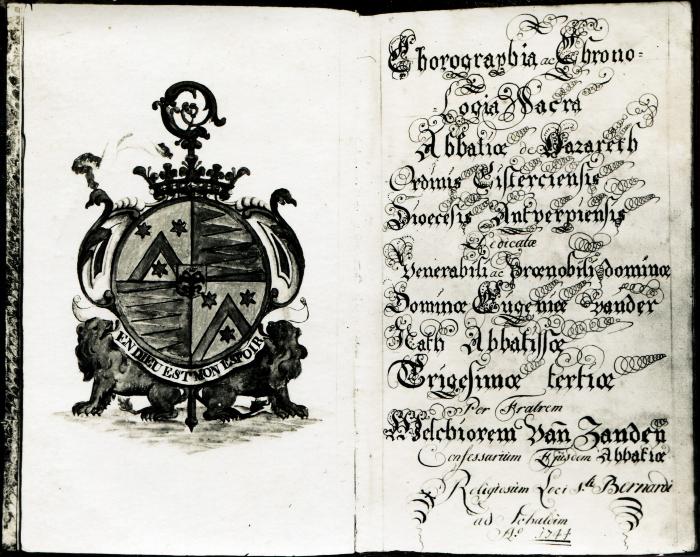 EN DIEU EST MON ESPOIR
Chorographia ac Chrono-
-Logia Sacra
Abbatiæ de Nazareth
Ordinis Cisterciensis
Dioecesis Antverpiensis
Dedicata
Venerabili ac Prænobili dominæ
Dominæ Eugeniæ Vander
Nath Abbatissæ
Trigesimæ tertiæ
Per Fratrem
Melchiorem Van Zanden
Confessarium Ejusdem Abbatiæ
Religiosum Loci Sti Bernardi
ad Schaldim
Ao 1744